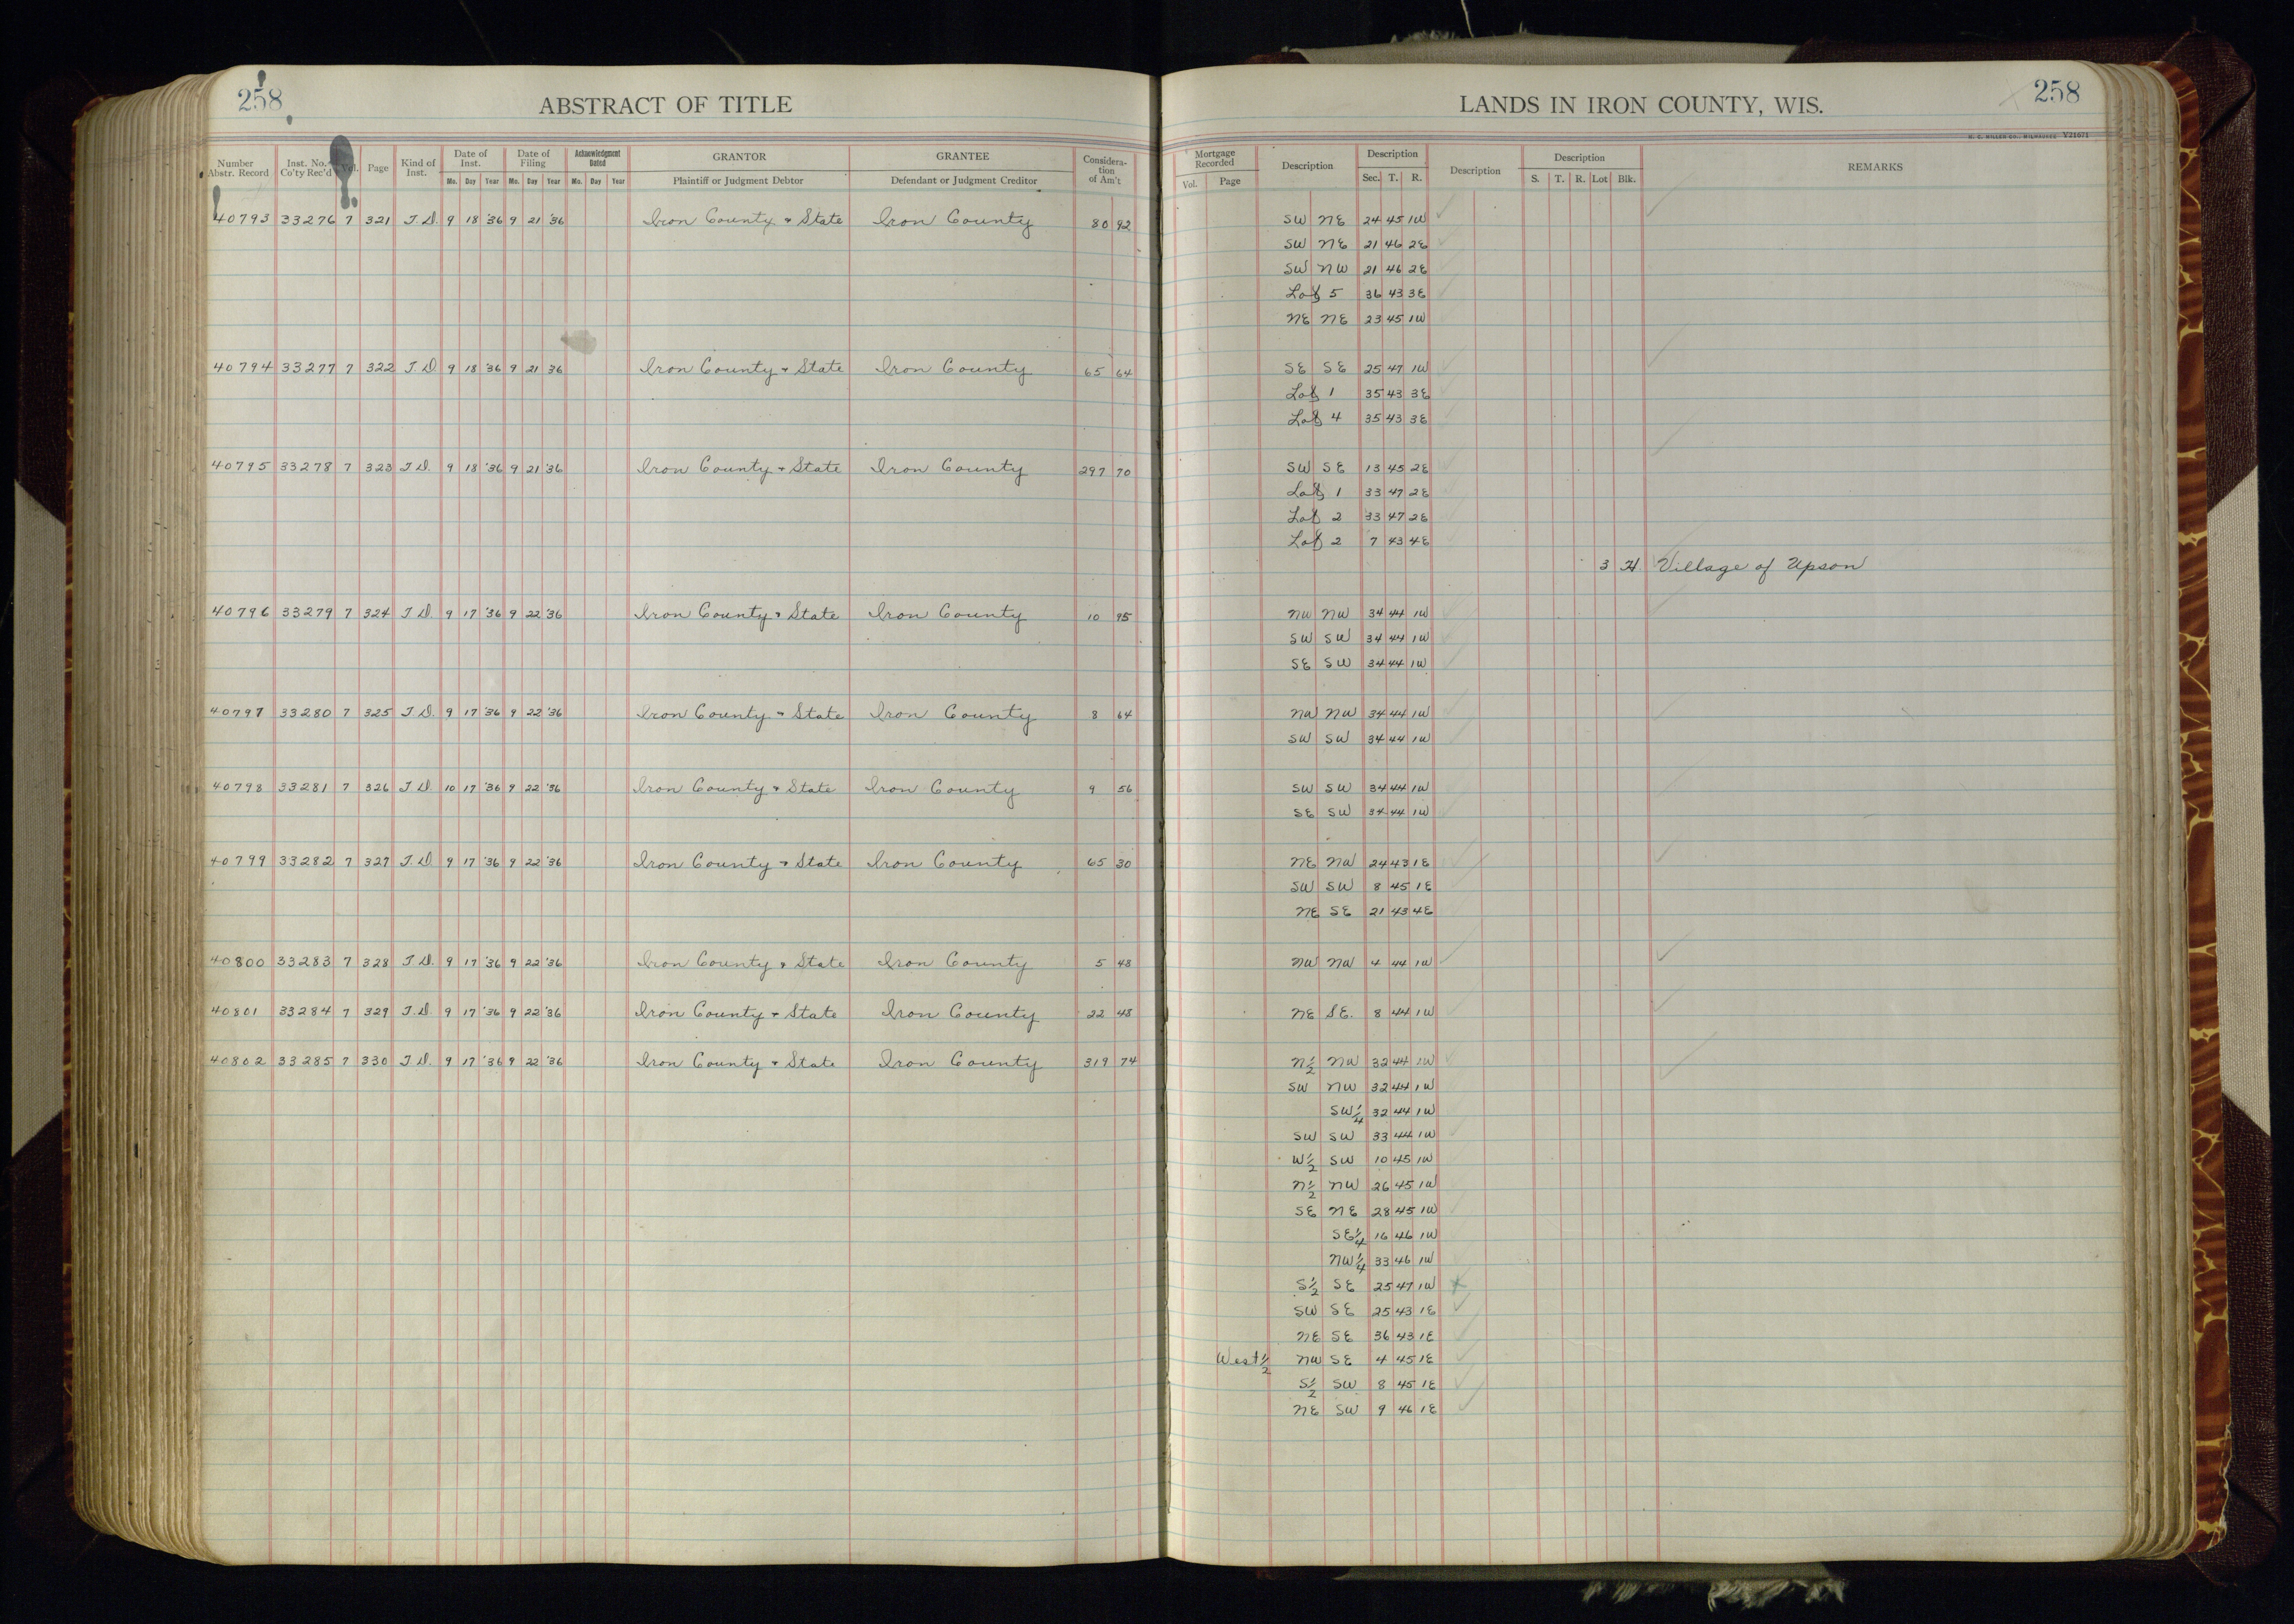 258 ABSTRACT OF TITLE LANDS IN IRON COUNTY, WIS. 258
H. C. MILLER CO., MILWAUKEE Y21671
Number Abstr. Record Inst. No. Co'ty Rec'd Vol. Page Kind of Inst. Date of Inst. Mo. Day Year Date of Filing Mo. Day Year Acknowledgment Dated Mo. Day Year GRANTOR Plaintiff or Judgment Debtor GRANTEE Defendant or Judgment Creditor Considera-tion of Am't Mortgage Recorded Vol. Page Description Description Sec. T. R. Description Description S. T. R. Lot Blk. REMARKS
40793 33276 7 321 T.D. 9 18 '36 9 21 '36 Iron County & State Iron County 80 92 SW NE 24 45 1W
SW NE 21 46 2E
SW NW 21 46 2E
Lot 5 36 43 3E
NE NE 23 45 1W
40794 33277 7 322 T.D. 9 18 '36 9 21 36 Iron County & State Iron County 65 64 SE SE 25 47 1W
Lot 1 35 43 3E
Lot 4 35 43 3E
40795 33278 7 323 T.D. 9 18 '36 9 21 '36 Iron County & State Iron County 297 70 SW SE 13 45 2E
Lot 1 33 47 2E
Lot 2 33 47 2E
Lot 2 7 43 4E
3 H Village of Upson
40796 33279 7 324 T.D. 9 17 '36 9 22 '36 Iron County & State Iron County 10 95 NW NW 34 44 1W
SW SW 34 44 1W
SE SW 34 44 1W
40797 33280 7 325 T.D. 9 17 '36 9 22 '36 Iron County & State Iron County 8 64 NW NW 34 44 1W
SW SW 34 44 1W
40798 33281 7 326 T.D. 10 17 '36 9 22 '36 Iron County & State Iron County 9 56 SW SW 34 44 1W
SE SW 34 44 1W
40799 33282 7 327 T.D. 9 17 '36 9 22 '36 Iron County & State Iron County 65 30 NE NW 24 43 1E
SW SW 8 45 1E
NE SE 21 43 4E
40800 33283 7 328 T.D. 9 17 '36 9 22 '36 Iron County & State Iron County 5 48 NW NW 4 44 1W
40801 33284 7 329 T.D. 9 17 '36 9 22 '36 Iron County & State Iron County 22 48 NE SE. 8 44 1W
40802 33285 7 330 T.D. 9 17 '36 9 22 '36 Iron County & State Iron County 319 74 N½ NW 32 44 1W
SW NW 32 44 1W
SW¼ 32 44 1W
SW SW 33 44 1W
W½ SW 10 45 1W
N½ NW 26 45 1W
SE NE 28 45 1W
SE¼ 16 46 1W
NW¼ 33 46 1W
S½ SE 25 47 1W x
SW SE 25 43 1E
NE SE 36 43 1E
West½ NW SE 4 45 1E
S½ SW 8 45 1E
NE SW 9 46 1E